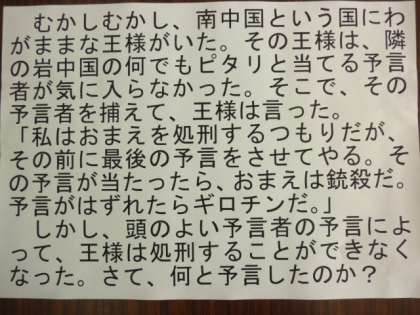 むかしむかし、南中国という国にわ
がままな王様がいた。その王様は、隣
の岩中国の何でもピタリと当てる予言
者が気に入らなかった。そこで、その
予言者を捕えて、王様は言った。
「私はおまえを処刑するつもりだが、
その前に最後の予言をさせてやる。そ
の予言が当たったら、おまえは銃殺だ。
予言がはずれたらギロチンだ。」
しかし、頭のよい予言者の予言によ
って、王様は処刑することができなく
なった。さて、何と予言したのか？